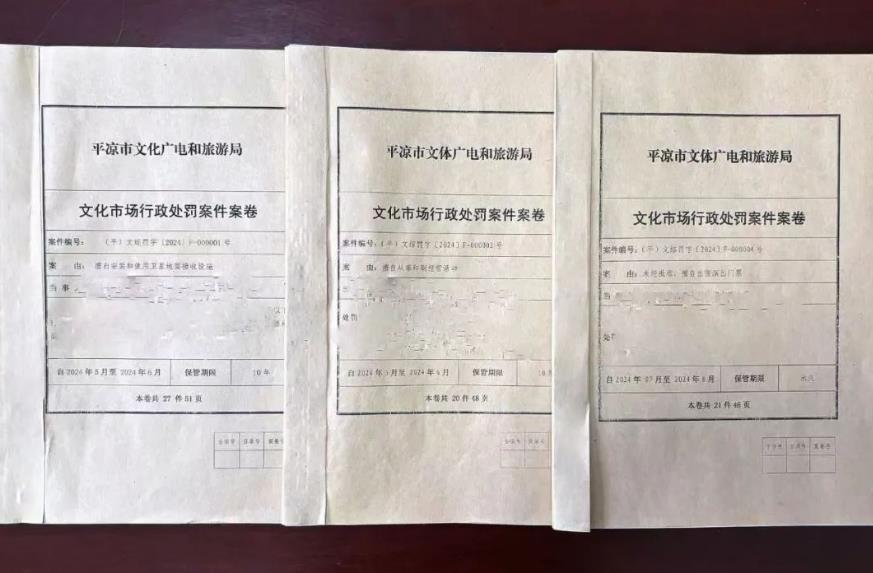 平凉市文化广电和旅游局
文化市场行政处罚案件案卷
案件编号：（平）文综罚字〔2024〕F-000001号
案 由：擅自安装和使用卫星地面接收设施
当事
自2024年5月至2024年6月 保管期限 10年
本卷共 27 件 51 页
全宗号 目录号 案卷号
平凉市文体广电和旅游局
文化市场行政处罚案件案卷
案件编号：（平）文综罚字〔2024〕F-000002号
案 由：擅自从事印刷经营活动
处罚
月至 2024年6月 保管期限 10
本卷共 20 件 48 页
平凉市文体广电和旅游局
文化市场行政处罚案件案卷
案件编号：（平）文综罚字〔2024〕F-000004号
案 由：未经批准，擅自出售演出门票
当
自2024年07月至2024年8月 保管期限 永久
本卷共 21 件 46 页
全宗号 目录号 案卷号